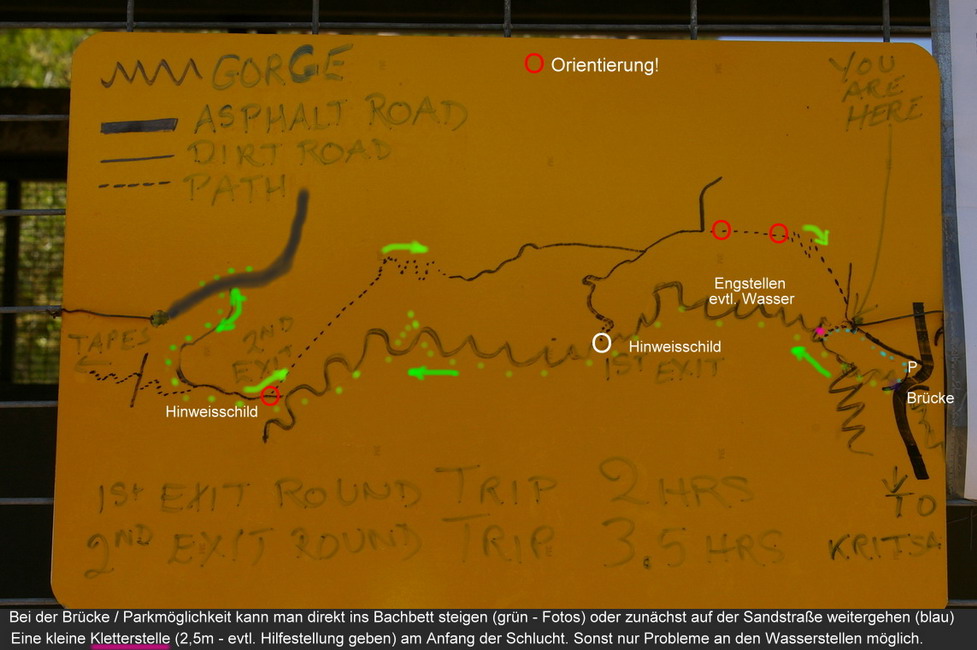 GORGE
ASPHALT ROAD
DIRT ROAD
PATH
O Orientierung!
YOU
ARE
HERE
Engstellen
evtl. Wasser
TAPES
2ND
EXIT
Hinweisschild
Hinweisschild
1ST EXIT
P
Brücke
1st EXIT ROUND TRIP 2 HRS
2ND EXIT ROUND TRIP 3.5 HRS
TO
KRITSA
Bei der Brücke / Parkmöglichkeit kann man direkt ins Bachbett steigen (grün - Fotos) oder zunächst auf der Sandstraße weitergehen (blau)
Eine kleine Kletterstelle (2,5m - evtl. Hilfestellung geben) am Anfang der Schlucht. Sonst nur Probleme an den Wasserstellen möglich.